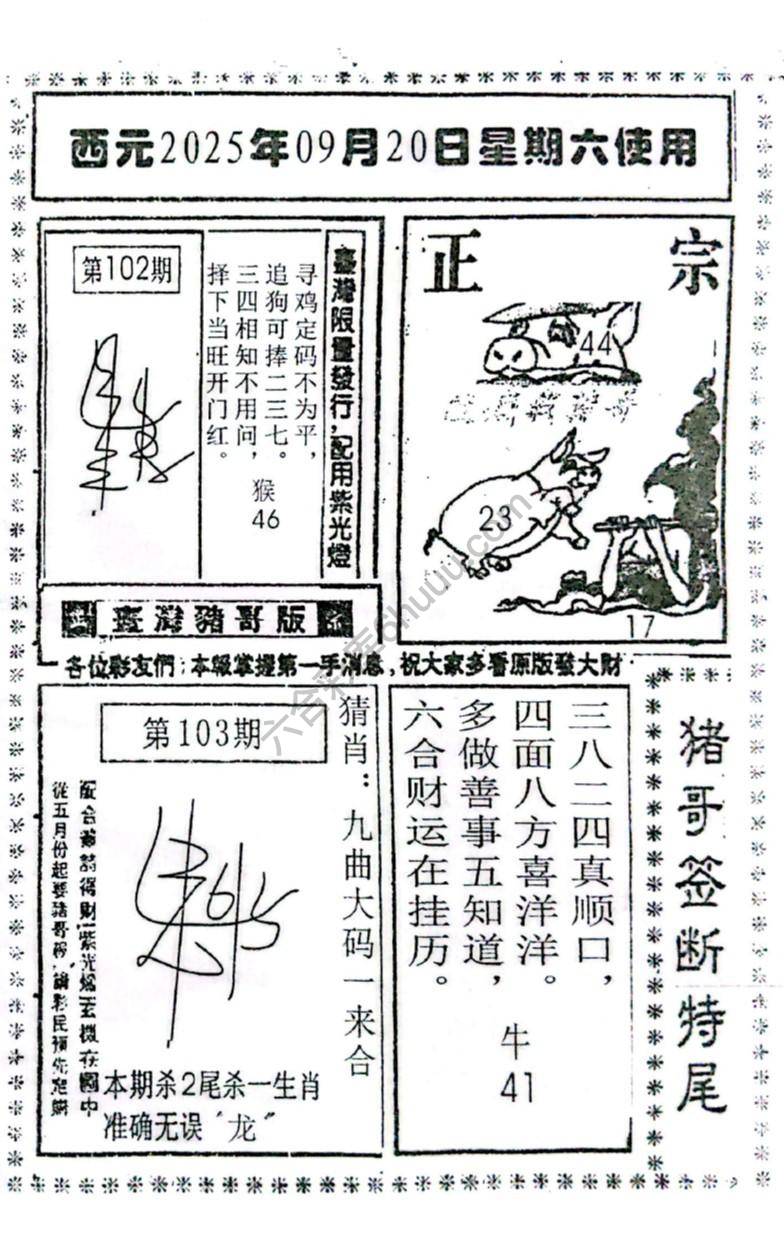 西元2025年09月20日星期六使用
第102期
臺灣限量發行，配用紫光燈
寻鸡定码不为平，
追狗可捧二三七。
三四相知不用问，
择下当旺开门红。
猴
46
正宗
44
23
17
臺灣豬哥版
各位彩友們：本級掌握第一手消息，祝大家多看原版發大財
第103期
猜肖：九曲大码一来合
本期杀2尾杀一生肖
准确无误“龙”
三八二四真顺口，
四面八方喜洋洋。
多做善事五知道，
六合财运在挂历。
牛
41
猪哥签断特尾
六合彩库6huuu.com